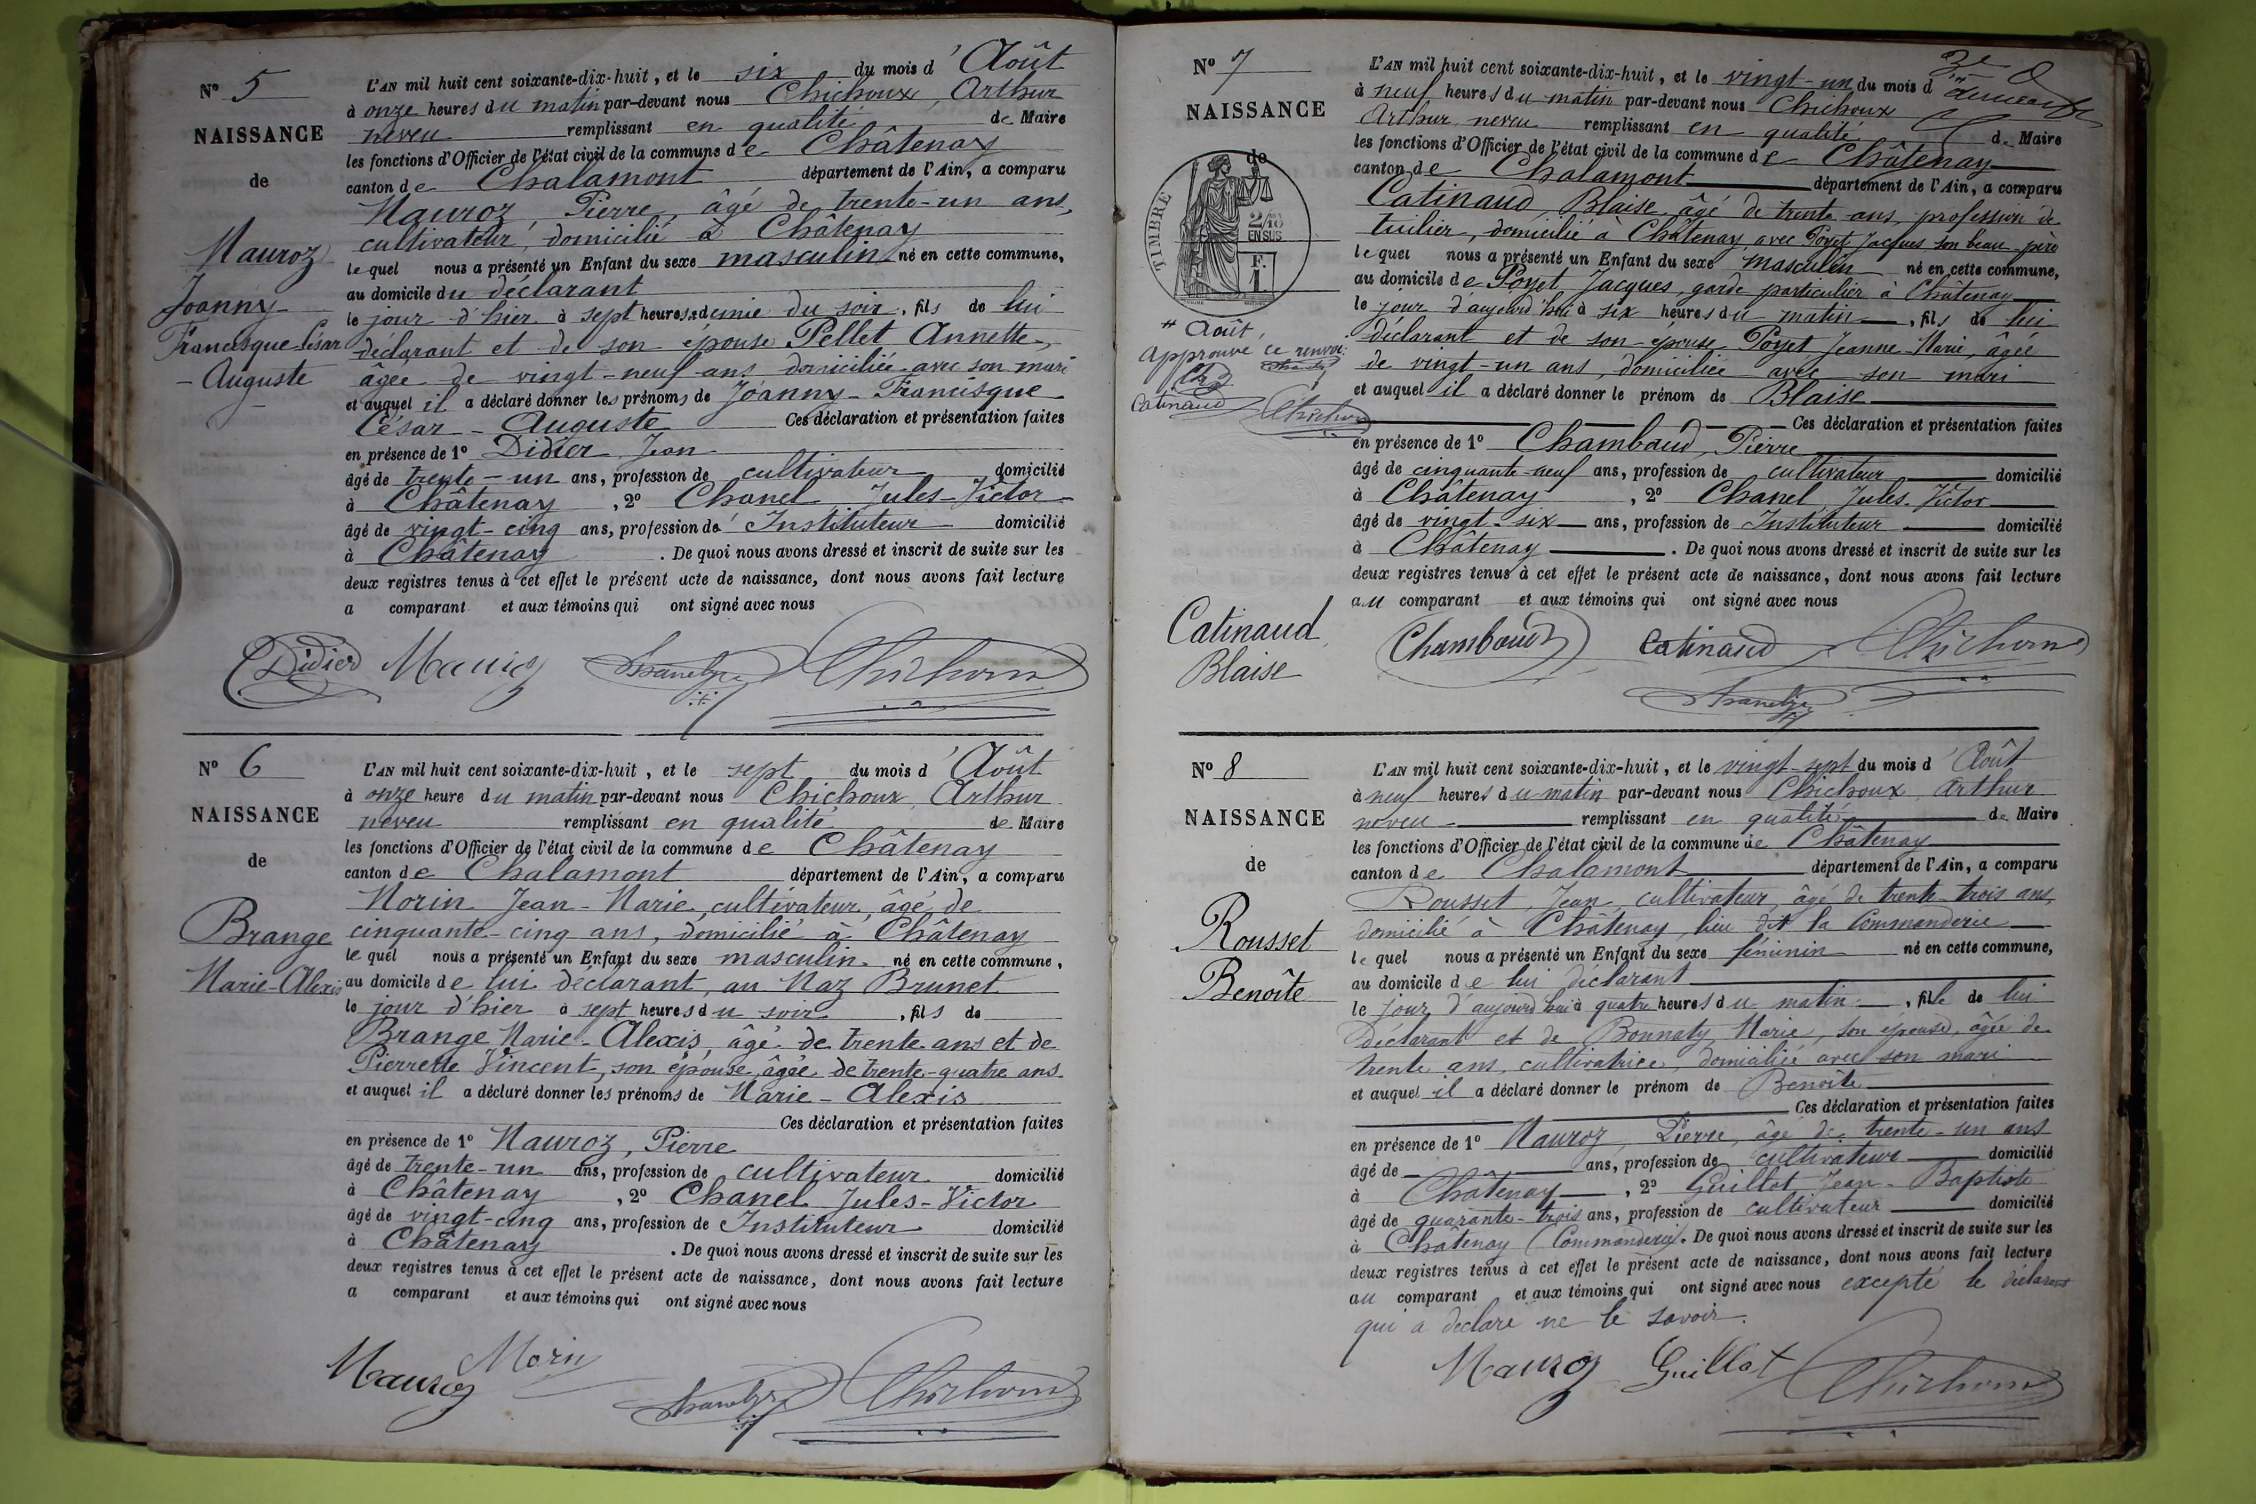 N° 5
NAISSANCE
de
Mauroz
Joanny
Francisque-César
- Auguste
L'AN mil huit cent soixante-dix-huit, et le six du mois d'Août
à onze heures du matin par-devant nous Chichoux, Arthur
neveu remplissant en qualité de Maire
les fonctions d'Officier de l'état civil de la commune de Châtenay
canton de Chalamont département de l'Ain, a comparu
Mauroz, Pierre, âgé de trente-un ans,
cultivateur, domicilié à Châtenay
lequel nous a présenté un Enfant du sexe masculin né en cette commune,
au domicile du déclarant
le jour d'hier à sept heures & demie du soir, fils de lui
déclarant et de son épouse Pellet Annette,
âgée de vingt-neuf ans domiciliée avec son mari
et auquel il a déclaré donner les prénoms de Joanny-Francisque
César - Auguste Ces déclaration et présentation faites
en présence de 1° Didier, Jean
âgé de trente-un ans, profession de cultivateur domicilié
à Châtenay, 2° Chanel Jules-Victor
âgé de vingt-cinq ans, profession de Instituteur domicilié
à Châtenay. De quoi nous avons dressé et inscrit de suite sur les
deux registres tenus à cet effet le présent acte de naissance, dont nous avons fait lecture
a comparant et aux témoins qui ont signé avec nous
Didier Mauroz
N° 6
NAISSANCE
de
Brange
Marie-Alexis
L'AN mil huit cent soixante-dix-huit, et le sept du mois d'Août
à onze heure du matin par-devant nous Chichoux, Arthur
neveu remplissant en qualité de Maire
les fonctions d'Officier de l'état civil de la commune de Châtenay
canton de Chalamont département de l'Ain, a comparu
Morin Jean-Marie, cultivateur, âgé de
cinquante-cinq ans, domicilié à Châtenay
lequel nous a présenté un Enfant du sexe masculin né en cette commune,
au domicile de lui déclarant, au Maz Brunet
le jour d'hier à sept heures du soir, fils de
Brange Marie-Alexis, âgé de trente ans et de
Pierrette Vincent, son épouse, âgée de trente-quatre ans
et auquel il a déclaré donner les prénoms de Marie-Alexis
Ces déclaration et présentation faites
en présence de 1° Mauroz, Pierre
âgé de trente-un ans, profession de cultivateur domicilié
à Châtenay, 2° Chanel Jules-Victor
âgé de vingt-cinq ans, profession de Instituteur domicilié
à Châtenay. De quoi nous avons dressé et inscrit de suite sur les
deux registres tenus à cet effet le présent acte de naissance, dont nous avons fait lecture
a comparant et aux témoins qui ont signé avec nous
Mauroz Morin
N° 7
NAISSANCE
de
TIMBRE
2/10
EN SUS
F.
1
" Août,
Approuvé ce renvoi:
Catinaud
Catinaud
Blaise
L'AN mil huit cent soixante-dix-huit, et le vingt-un du mois d"
à neuf heures du matin par-devant nous Chichoux
Arthur neveu remplissant en qualité de Maire
les fonctions d'Officier de l'état civil de la commune de Châtenay
canton de Chalamont département de l'Ain, a comparu
Catinaud Blaise âgé de trente ans, profession de
tuilier, domicilié à Châtenay, avec Poyet Jacques son beau-père
lequel nous a présenté un Enfant du sexe masculin né en cette commune,
au domicile de Poyet Jacques, garde particulier à Châtenay
le jour d'aujourd'hui à six heures du matin, fils de lui
déclarant et de son épouse Poyet Jeanne Marie, âgée
de vingt-un ans, domiciliée avec son mari
et auquel il a déclaré donner le prénom de Blaise
Ces déclaration et présentation faites
en présence de 1° Chambaud, Pierre
âgé de cinquante-neuf ans, profession de cultivateur domicilié
à Châtenay, 2° Chanel, Jules-Victor
âgé de vingt-six ans, profession de Instituteur domicilié
à Châtenay. De quoi nous avons dressé et inscrit de suite sur les
deux registres tenus à cet effet le présent acte de naissance, dont nous avons fait lecture
au comparant et aux témoins qui ont signé avec nous
Chambaud Catinaud
N° 8
NAISSANCE
de
Rousset
Benoîte
L'AN mil huit cent soixante-dix-huit, et le vingt-sept du mois d'Août
à neuf heures du matin par-devant nous Chichoux Arthur
neveu remplissant en qualité de Maire
les fonctions d'Officier de l'état civil de la commune de Châtenay
canton de Chalamont département de l'Ain, a comparu
Rousset, Jean, cultivateur, âgé de trente-trois ans,
domicilié à Châtenay, lieu dit la Commanderie
lequel nous a présenté un Enfant du sexe féminin né en cette commune,
au domicile de lui déclarant
le jour d'aujourd'hui à quatre heures du matin, fille de lui
déclarant et de Bonnaty Marie, son épouse, âgée de
trente ans, cultivatrice, domiciliée avec son mari
et auquel il a déclaré donner le prénom de Benoîte
Ces déclaration et présentation faites
en présence de 1° Mauroz, Pierre, âgé de trente-un ans
âgé de ans, profession de cultivateur domicilié
à Châtenay, 2° Guillot Jean-Baptiste
âgé de quarante-trois ans, profession de cultivateur domicilié
à Châtenay (Commanderie). De quoi nous avons dressé et inscrit de suite sur les
deux registres tenus à cet effet le présent acte de naissance, dont nous avons fait lecture
au comparant et aux témoins qui ont signé avec nous excepté le déclarant
qui a déclaré ne le savoir.
Mauroz Guillot